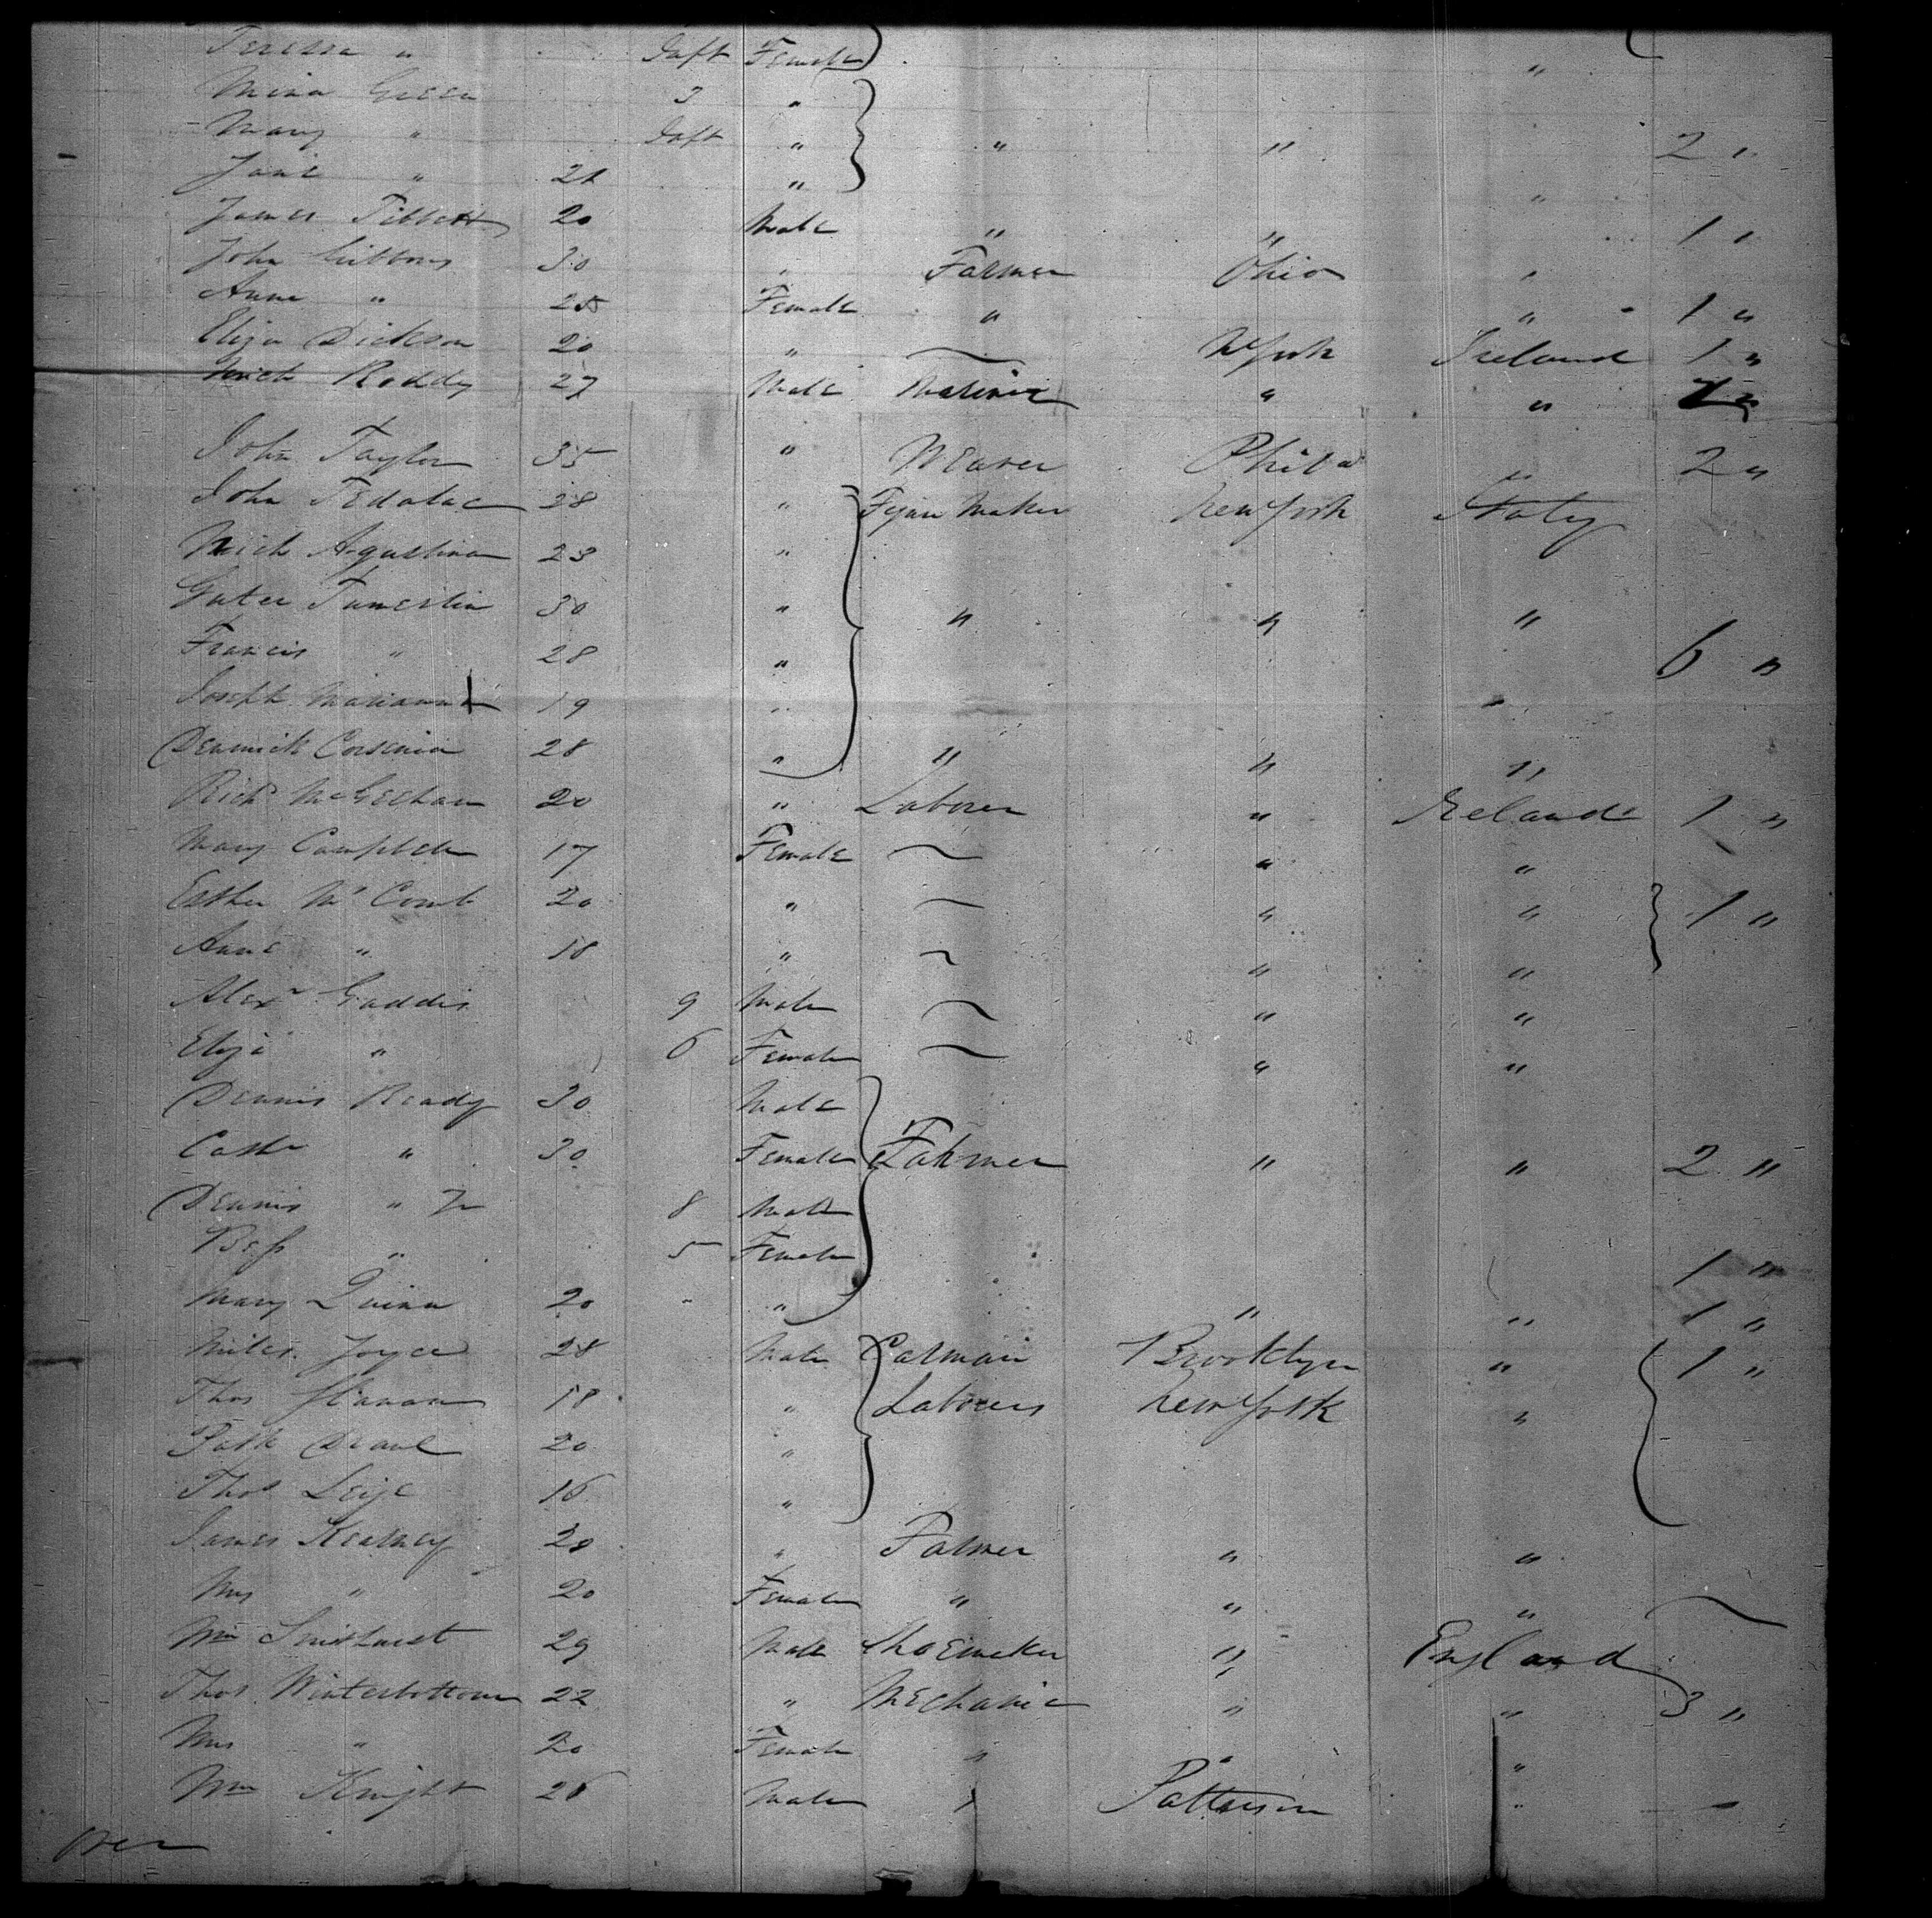 Teressa " Inft Female "
Mina Green 3 "
Mary " Inft " " " 2 "
Jane " 21 " "
James Tibbett 20 Male " " 1 "
John Gibbons 30 " Farmer Ohio "
Anne " 25 Female " " 1 "
Eliza Dickson 20 " ~ NYork Ireland 1 "
Mich Roddy 27 Male " "
John Taylor 35 " Weaver Phila 2 "
John Tedalac 28 " Figure Maker New York Italy
Nich Agustina 23 "
30 " " " "
Francis " 28 " 6 "
Joseph 19 " "
28 " " " "
Richd McGeehan 20 " Laborer " Ireland 1 "
Mary Campbell 17 Female ~ " "
Esther Mc Comb 20 " ~ " " 1 "
Anne " 18 " ~ " "
Alexr Gaddis 9 Male ~ " "
Eliza " 6 Female ~ " "
Dennis Ready 30 Male
Cath " 30 Female Farmer " " 2 "
Dennis " Jr 8 Male
Bess " 5 Female 1 "
Mary Quinn 20 " " " 1 "
Miles Joyce 28 Male Carman Brooklyn " 1 "
Thos 18 " Laborers New York "
Patk 20 "
Thos 16 "
James Kearney 28 " Farmer " "
Mrs " 20 Female " " "
Wm Smithurst 29 Male Shoemaker " England
Thos Winterbottom 22 " Mechanic " " 3 "
Mrs " 20 Female " " "
Wm Knight 26 Male " Patterson "
over